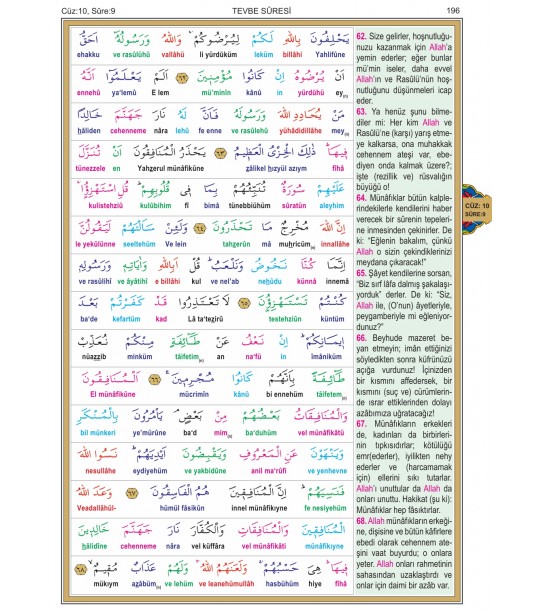 Cüz:10, Sûre:9
TEVBE SÛRESİ
196
يَحْلِفُونَ بِاللّٰهِ لَكُمْ لِيُرْضُوكُمْۚ وَاللّٰهُ وَرَسُولُهُٓ اَحَقُّ
Yahlifûne billâhi leküm li yürdûküm vallâhü ve rasûlühû ehakku
اَنْ يُرْضُوهُ اِنْ كَانُوا مُؤْمِن۪ينَ ﴿٦٢﴾ اَلَمْ يَعْلَمُٓوا اَنَّهُ
ey(n) yürdûhü in kânû mü'minîn E lem ya'lemû ennehû
مَنْ يُحَادِدِ اللّٰهَ وَرَسُولَهُ فَاَنَّ لَهُ نَارَ جَهَنَّمَ خَالِدًا
mey(n) yühâdidillâhe ve rasûlehû fe enne lehû nâra cehenneme hâliden
ف۪يهَاۜ ذٰلِكَ الْخِزْيُ الْعَظ۪يمُ ﴿٦٣﴾ يَحْذَرُ الْمُنَافِقُونَ اَنْ تُنَزَّلَ
fîhâ zâlikel hızyül azıym Yahzerul münâfikûne en tünezzele
عَلَيْهِمْ سُورَةٌ تُنَبِّئُهُمْ بِمَا ف۪ي قُلُوبِهِمْۜ قُلِ اسْتَهْزِؤُ۫اۚ
aleyhim sûratün tünebbiühüm bimâ fî kulûbihim kulistehziû
اِنَّ اللّٰهَ مُخْرِجٌ مَا تَحْذَرُونَ ﴿٦٤﴾ وَلَئِنْ سَاَلْتَهُمْ لَيَقُولُنَّ
innallâhe muhricüm(n) mâ tahzerûn Ve lein seeltehüm le yekûlünne
اِنَّمَا كُنَّا نَخُوضُ وَنَلْعَبُۜ قُلْ اَبِاللّٰهِ وَاٰيَاتِه۪ وَرَسُولِه۪
innemâ künnâ nehûdu ve nel'ab kul e billâhi ve âyâtihî ve rasûlihî
كُنْتُمْ تَسْتَهْزِؤُ۫نَ ﴿٦٥﴾ لَا تَعْتَذِرُوا قَدْ كَفَرْتُمْ بَعْدَ
küntüm testehziûn Lâ ta'tezirû kad kefertüm ba'de
ا۪يمَانِكُمْۜ اِنْ نَعْفُ عَنْ طَٓائِفَةٍ مِنْكُمْ نُعَذِّبْ
îmâniküm in na'fü an tâifetim(n) minküm nüazzib
طَٓائِفَةً بِاَنَّهُمْ كَانُوا مُجْرِم۪ينَ۟ ﴿٦٦﴾ اَلْمُنَافِقُونَ
tâifetem(n) bi ennehüm kânû mücrimîn El münâfikûne
وَالْمُنَافِقَاتُ بَعْضُهُمْ مِنْ بَعْضٍۢ يَأْمُرُونَ بِالْمُنْكَرِ
vel münâfikâtü ba'duhüm mim(n) ba'd ye'mürûne bil münkeri
وَيَنْهَوْنَ عَنِ الْمَعْرُوفِ وَيَقْبِضُونَ اَيْدِيَهُمْۜ نَسُوا اللّٰهَ
ve yenhevne anil ma'rûfi ve yakbidûne eydiyehüm nesullâhe
فَنَسِيَهُمْۜ اِنَّ الْمُنَافِق۪ينَ هُمُ الْفَاسِقُونَ ﴿٦٧﴾ وَعَدَ اللّٰهُ
fe nesiyehüm innel münâfikîyne hümül fâsikûn Veadallâhül-
الْمُنَافِق۪ينَ وَالْمُنَافِقَاتِ وَالْكُفَّارَ نَارَ جَهَنَّمَ خَالِد۪ينَ
münâfikîyne vel münâfikâti vel küffâra nâra cehenneme hâlidîne
ف۪يهَاۜ هِيَ حَسْبُهُمْۚ وَلَعَنَهُمُ اللّٰهُۚ وَلَهُمْ عَذَابٌ مُق۪يمٌۙ ﴿٦٨﴾
fîhâ hiye hasbühüm ve leanehümullâh ve lehüm azâbüm(n) mükıym
62. Size gelirler, hoşnutluğu-
nuzu kazanmak için Allah'a
yemin ederler; eğer bunlar
mü'min iseler, daha evvel
Allah'ın ve Rasûlü'nün hoş-
nutluğunu düşünmeleri icap
eder.
63. Ya henüz şunu bilme-
diler mi: Her kim Allah ve
Rasûlü'ne (karşı) yarış etme-
ye kalkarsa, ona muhakkak
cehennem ateşi var, ebe-
diyen onda kalmak üzere?;
işte (rezillik ve) rüsvalığın
büyüğü o!
64. Münâfıklar bütün kalple-
rindekilerle kendilerini haber
verecek bir sûrenin tepeleri-
ne inmesinden çekinirler. De
ki: "Eğlenin bakalım, çünkü
Allah o sizin çekindiklerinizi
meydana çıkaracak!"
65. Şâyet kendilerine sorsan,
"Biz sırf lâfa dalmış şakalaşı-
yorduk" derler. De ki: "Siz,
Allah ile, (O'nun) âyetleriyle,
peygamberiyle mi eğleniyor-
dunuz?"
66. Beyhude mazeret be-
yan etmeyin; imân ettiğinizi
söyledikten sonra küfrünüzü
açığa vurdunuz! İçinizden
bir kısmını affedersek, bir
kısmını (suç ve) cürümlerin-
de ısrar ettiklerinden dolayı
azâbımıza uğratacağız!
67. Münâfıkların erkekleri
de, kadınları da birbirleri-
nin tıpkısıdırlar; kötülüğü
emr(ederler), iyilikten nehy
ederler ve (harcamamak
için) ellerini sıkı tutarlar.
Allah'ı unuttular da Allah da
onları unuttu. Hakikat (şu ki):
Münâfıklar hep fâsıktırlar.
68. Allah münâfıkların erkeği-
ne, dişisine ve bütün kâfirlere
ebedi olarak cehennem ate-
şini vaat buyurdu; o onlara
yeter. Allah onları rahmetinin
sahasından uzaklaştırdı ve
onlar için daimi bir azâb var.
CÜZ: 10
SÛRE:9